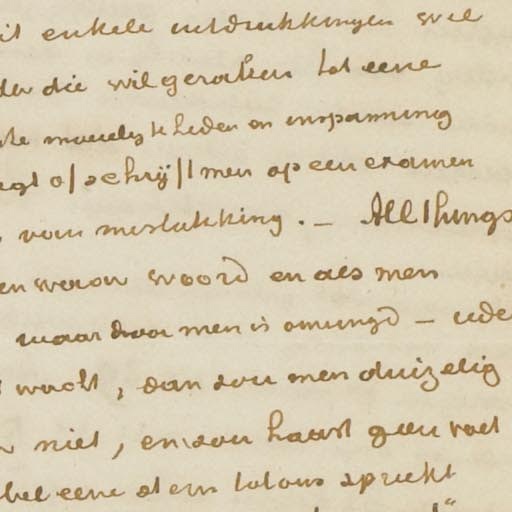 uit enkele uitdrukkingen wel
der die wil geraken tot eene
moeielijkheden en inspanning
zegt of schrijft men op een examen
van mislukking. — All things
een waar woord en als men
waar door men is omringd —
wacht, dan zou men duizelig
niet, en zou haast geen voet
eene stem tot ons spreekt